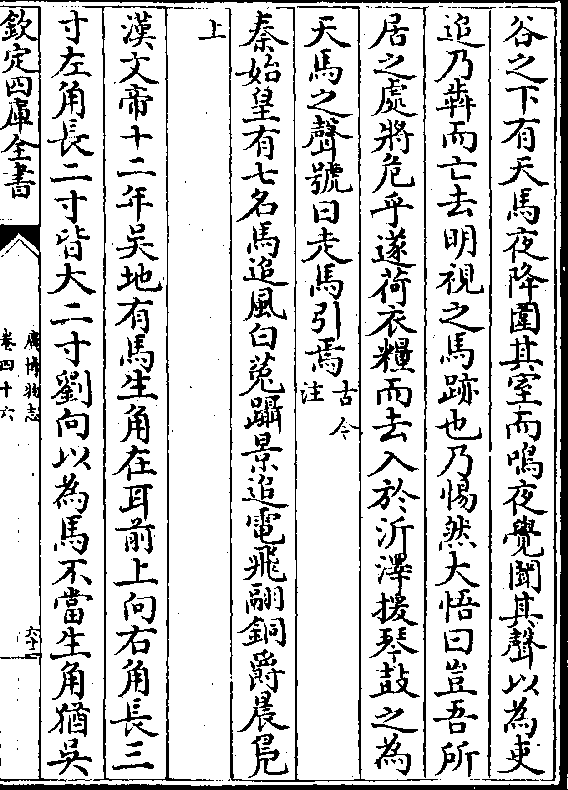 谷之下有天馬夜降圍其室而鳴夜覺聞其聲以為吏
追乃犇而亡去明視之馬跡也乃惕然大悟曰豈吾所
居之處將危乎遂荷衣糧而去入於沂澤援琴鼓之為
天馬之聲號曰走馬引焉古今注
秦始皇有七名馬追風白兎躡景追電飛翮銅爵晨鳬
上
漢文帝十二年吳地有馬生角在耳前上向右角長三
寸左角長二寸皆大二寸劉向以為馬不當生角猶吳
欽定四庫全書
廣博物志
卷四十六